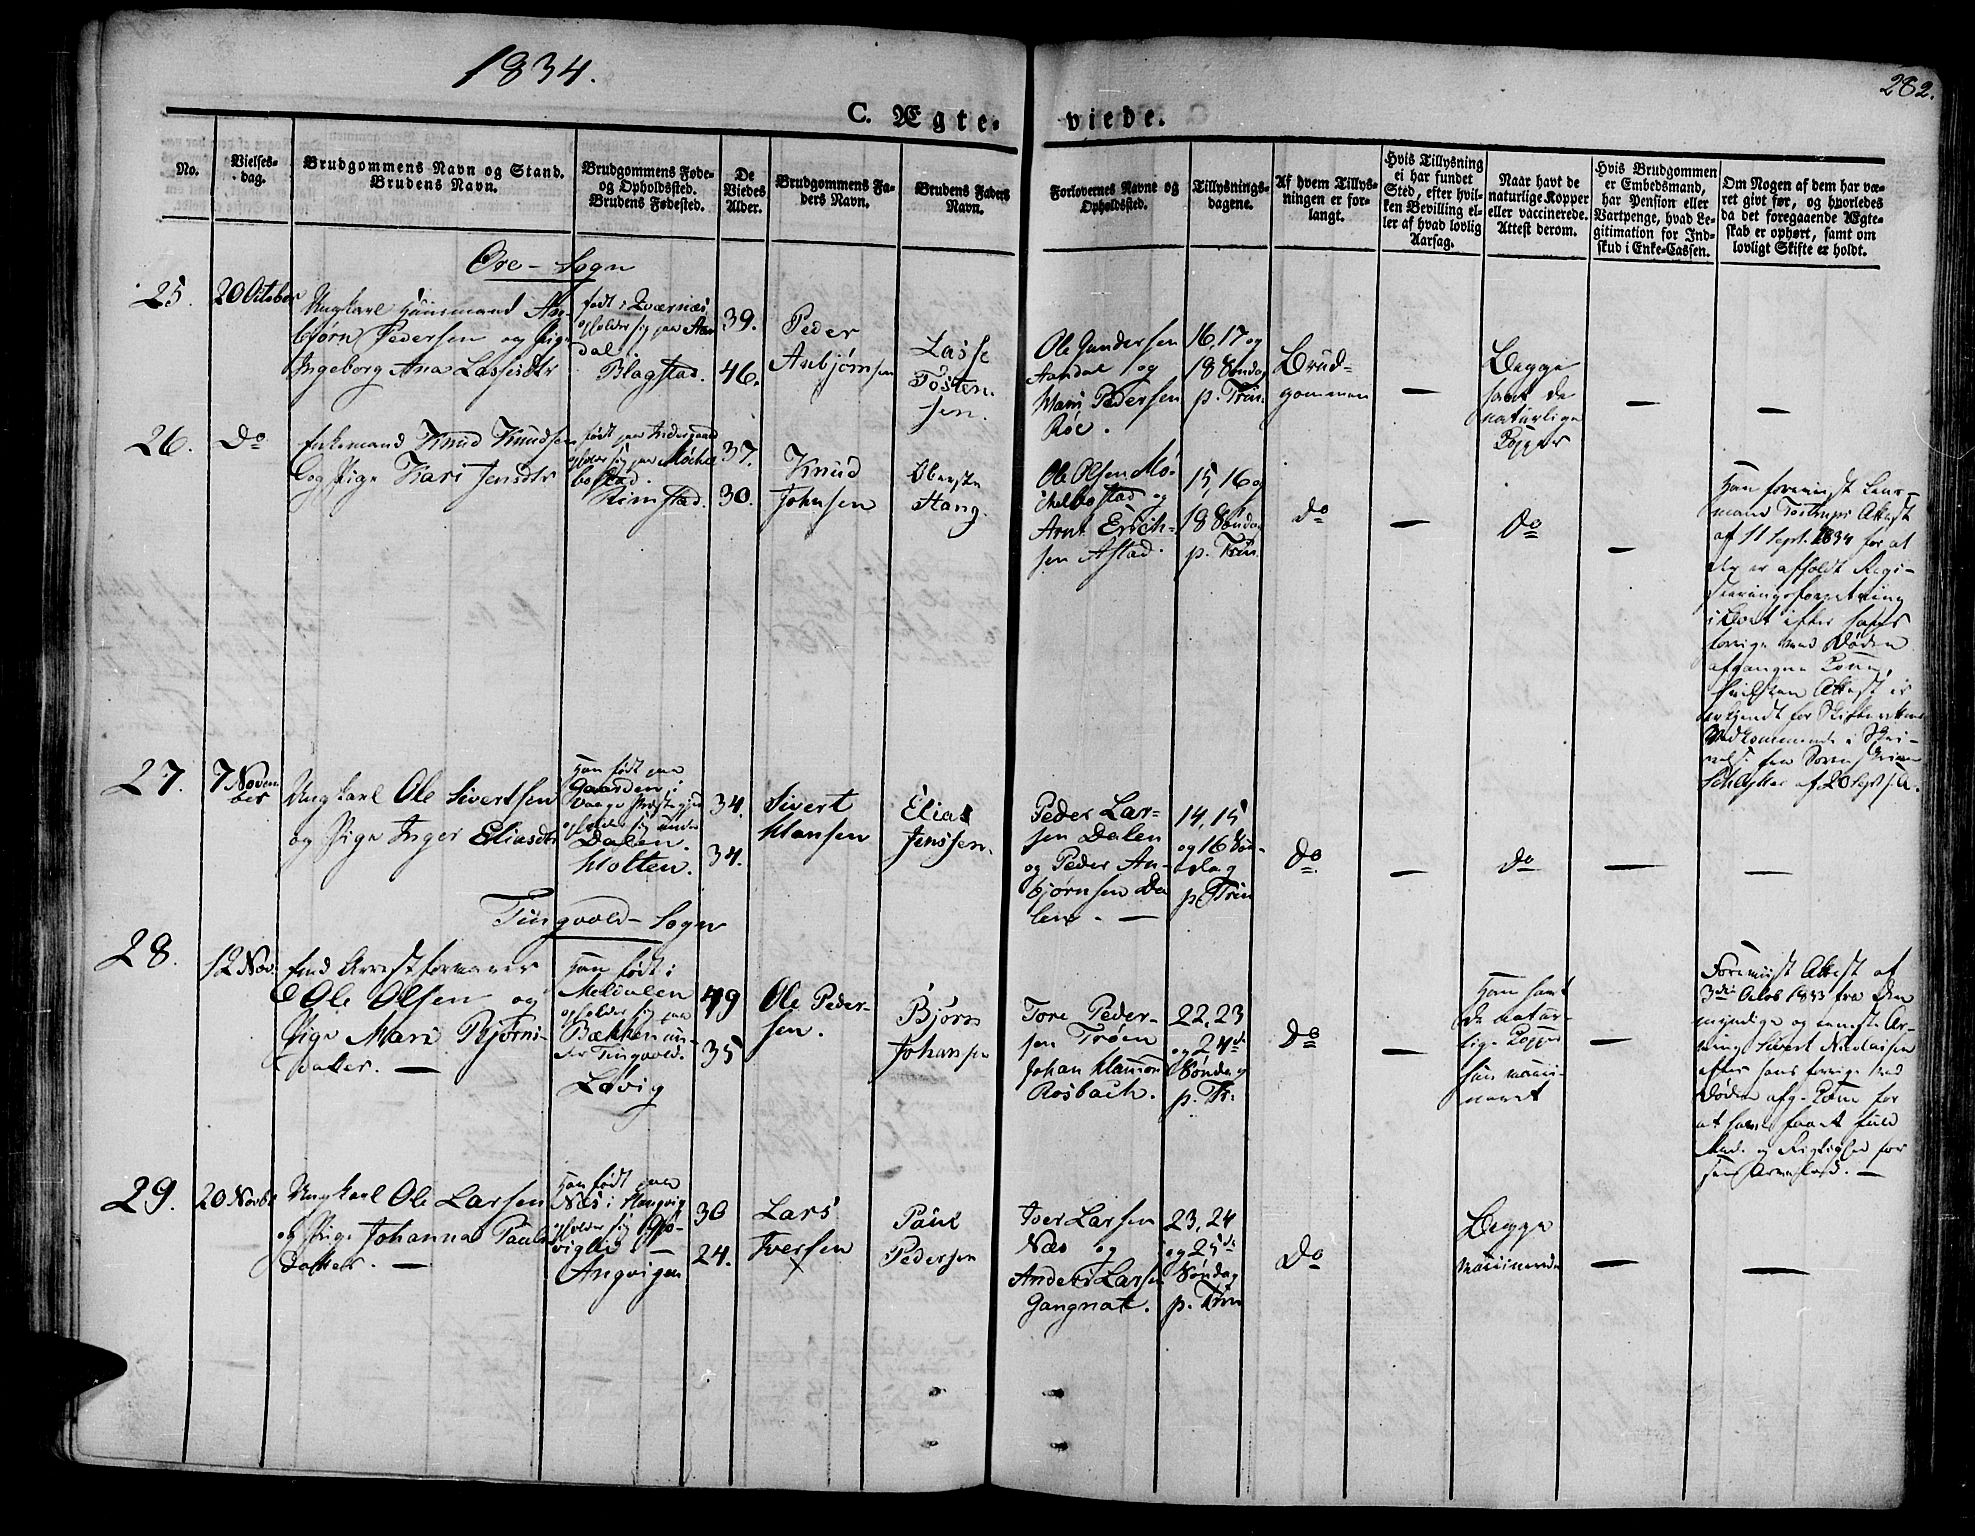 1834.
282.
C. Ægte-
viede.
No.
Vielses-
dag.
Brudgommens Navn og Stand.
Brudens Navn.
Brudgommens Føde-
og Opholdssted.
Brudens Fødested.
De
Viedes
Alder.
Brudgommens Fa-
ders Navn.
Brudens Faders
Navn.
Forlovernes Navne og
Opholdssted.
Tillysnings-
dagene.
Af hvem Tillys-
ningen er for-
langt.
Hvis Tillysning
ei har fundet
Sted, efter hvil-
ken Bevilling el-
ler af hvad lovlig
Aarsag.
Naar havt de
naturlige Kopper
eller vaccinerede.
Attest derom.
Hvis Brudgommen
er Embedsmand,
har Pension eller
Vartpenge, hvad Le-
gitimation for Ind-
skud i Enke-Cassen.
Om Nogen af dem har væ-
ret givt før, og hvorledes
da det foregaaende Ægte-
skab er ophørt, samt om
lovligt Skifte er holdt.
Øre- Sogn
25.
20 October
Ungkarl Huusmand As-
bjørn Pedersen og Pige
Ingeborg Ana Lassesdtr
født i Qværnæs
opholder sig paa Aan
dal
Blagstad.
39.
46.
Peder
Asbjørnsen
Lasse
Tosten-
sen.
Ole Gundersen
Aandal og
Hans Pedersen
Röe.
16, 17 og
18 Søndag
p. Trin.
Brud-
gommen
—
Begge
havt de
naturlige
Kopper
—
—
26.
Do
Enkemand Knud Knudsen
og Pige Kari Jensdtr
født paa
opholder sig paa Mökel
bostad.
Rimstad.
37.
30.
Knud
Johnsen
Oberste
Stang.
Ole Olsen Mö-
kelbostad og
Arnt Erich-
sen Astad.
15, 16 og
18 Søndag
p. Trin.
Do
—
Do
—
Han foreviist Lens-
mand Tostrups Attest
af 11 Sept. 1834 for at
der er afholdt Regi-
streringsforretning
i Boet efter hans
forrige ved Døden
afgangne Kone,
hvilken Attest er
27.
7 Novem
ber
Ungkarl Ole Sivertsen
og Pige Inger Eliasdtr
Han født paa
Gaarden i
Vaage Præstegjeld
opholder sig under
Dalen.
Holten.
34.
34.
Sivert
Hansen
Elias
Jenssen.
Peder Lar-
sen Dalen
og Peder As-
bjørnsen Da
len. —
14, 15
og 16 Søn-
dag
p. Trin
Do
—
Do
—
—
Tingvold- Sogn
28.
12 Nov.
Arrestforvarer
Ole Olsen og
Pige Mari Bjørns-
datter. —
Han født i
Meldalen
opholder sig paa
Bækken un-
der Tingvold.
Løvig
49
35
Ole Peder-
sen.
Bjørn
Johansen
Tore Peder-
sen Trøen
Johan Hanson
Rosbach.
22, 23
og 24de
Søndag
p. Tr.
Do
—
Han havt
de natur-
lige Kopper
hun vacci-
neret
—
Foreviist Attest af
3die Octob 1833 fra den
myndige og eneste Ar-
ving Sivert Nicolaisen
efter hans forrige ved
Døden afg. Kone for
at have faaet fuld
Rigtighed for
sin Arvelod. —
29.
20 Novbr
Ungkarl Ole Larsen
og Pige Johanna Pauls
datter. —
Han født paa
Næs i Stangvig
opholder sig Gjø-
viglie —
Angvigen
30
24.
Lars
Iversen
Paul
Pedersen
Iver Larsen
Næs og
Anders Larsen
Gangnat.
23, 24
og 25de
Søndag
p. Trin
Do
—
Begge
vaccinerede
—
—